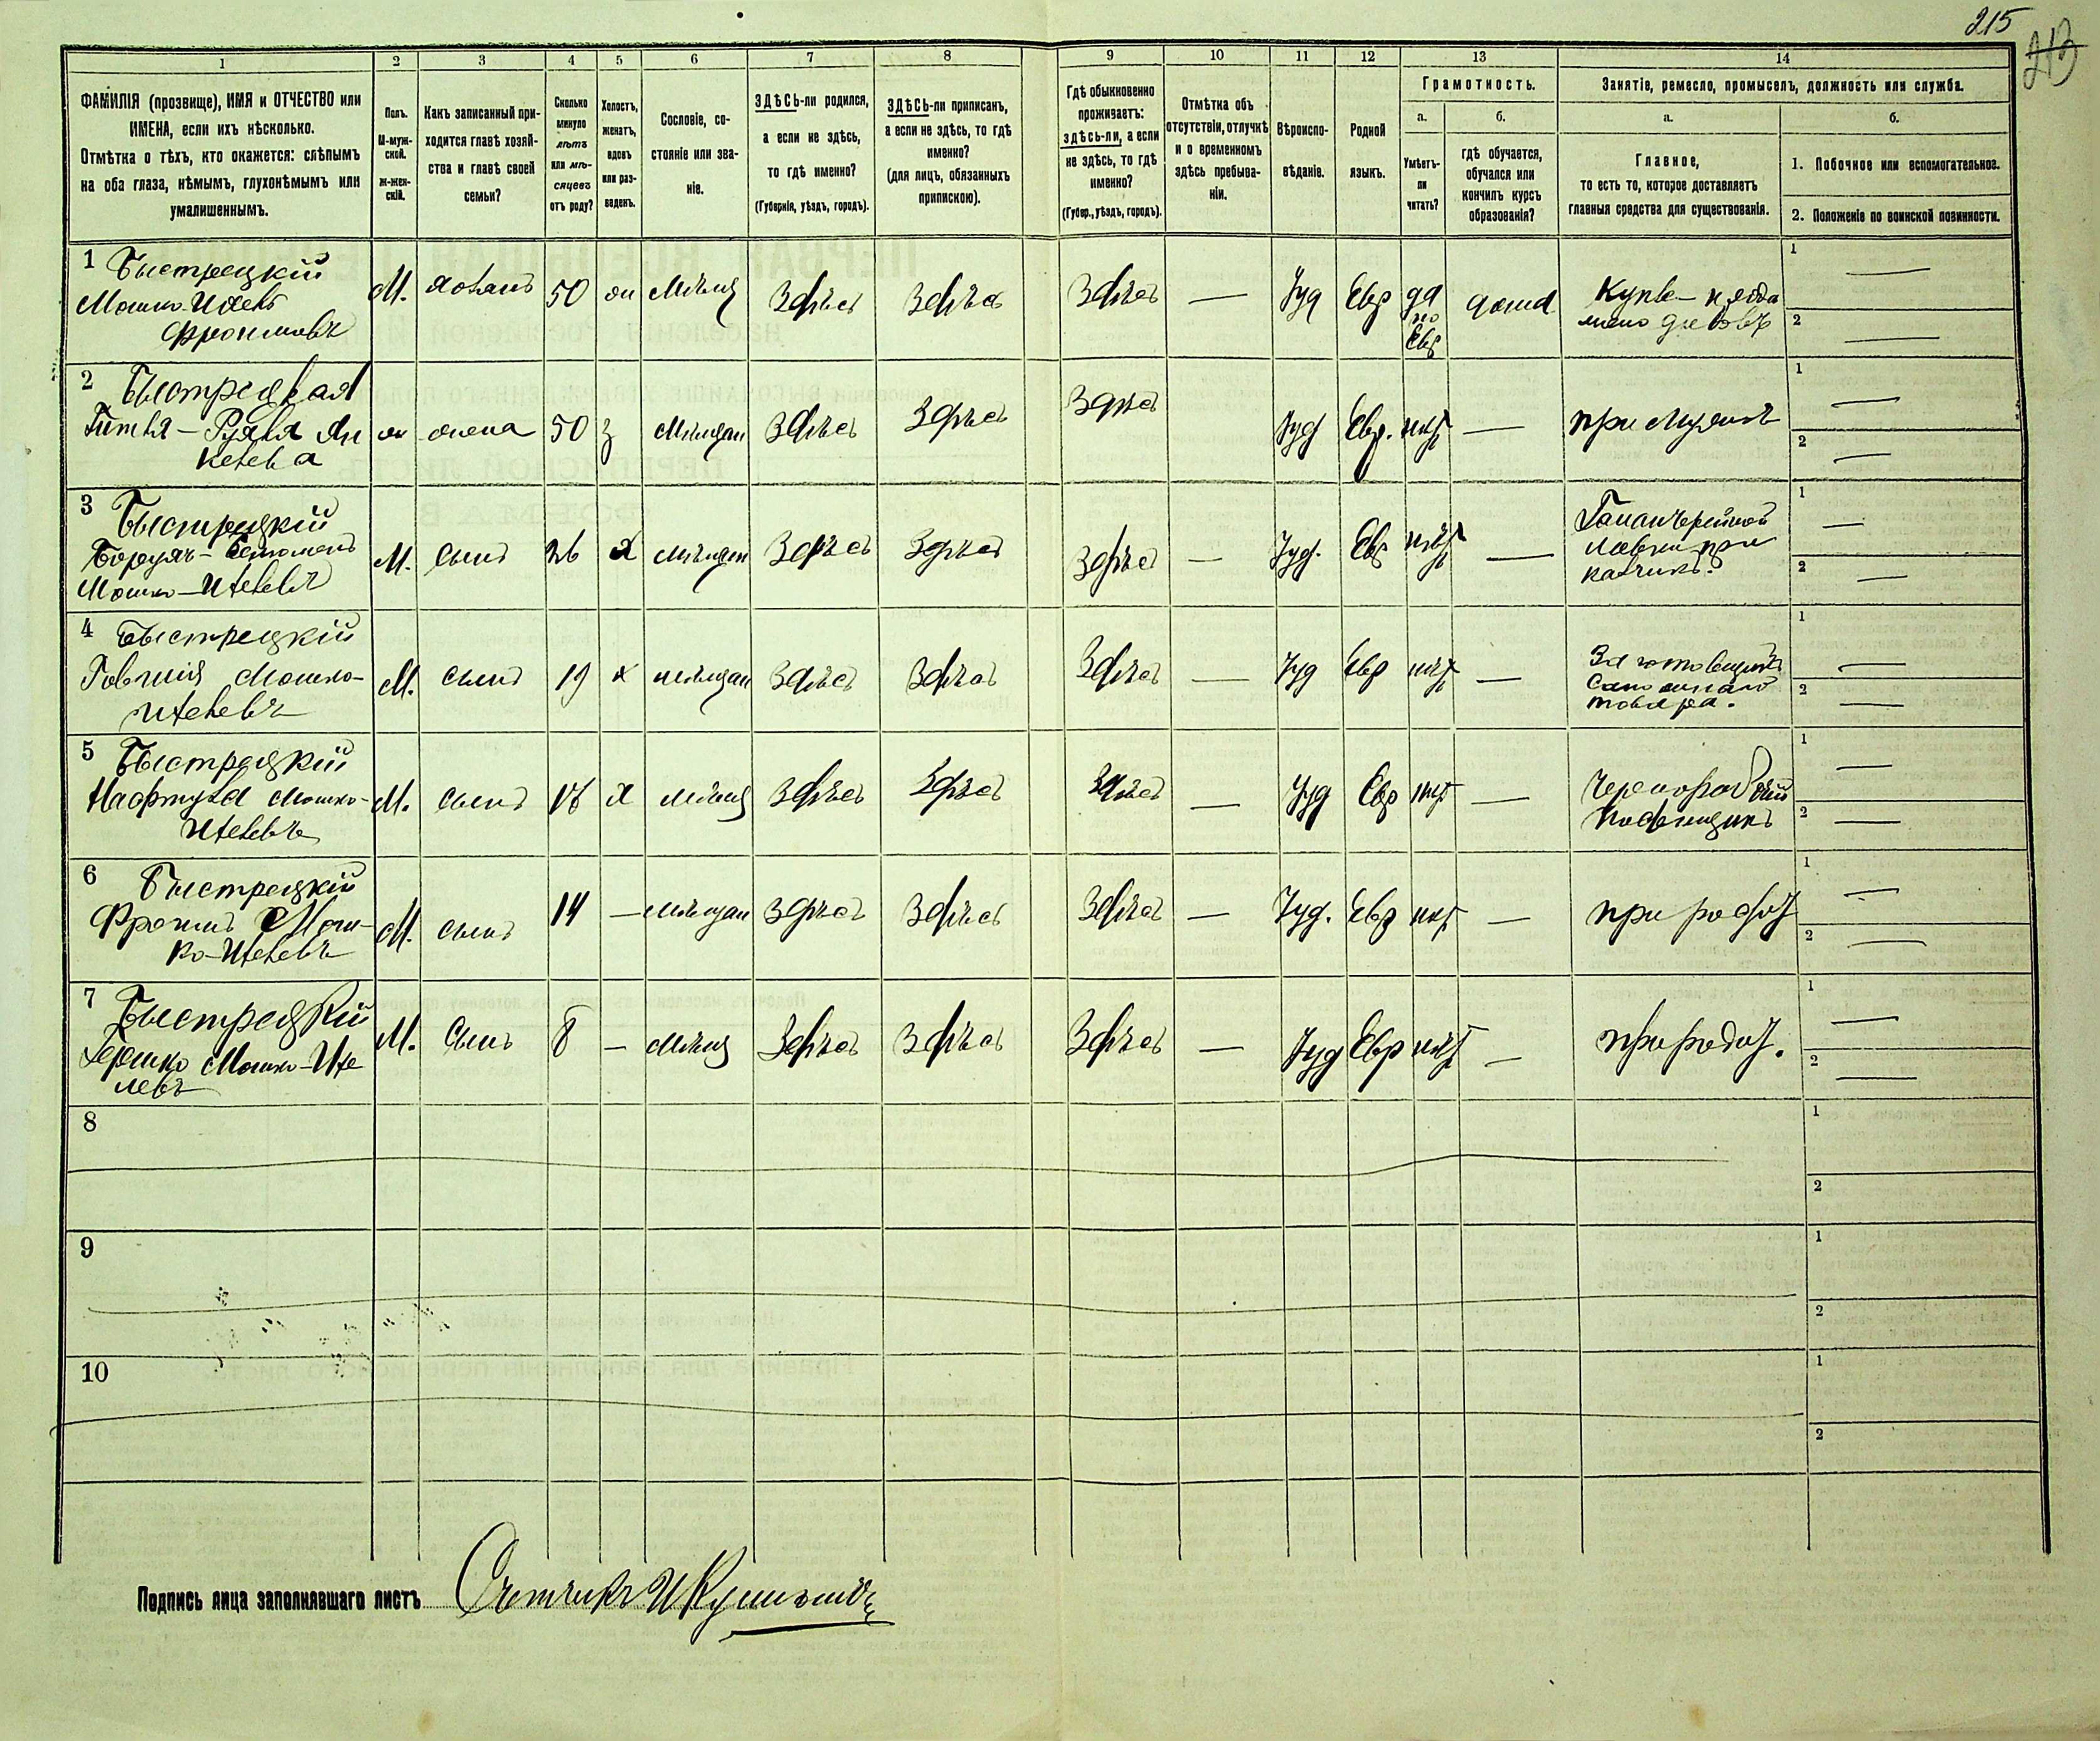 215
213
1
2
3
4
5
6
7
8
9
10
11
12
13
14
ФАМИЛІЯ (прозвище), ИМЯ и ОТЧЕСТВО или
ИМЕНА, если ихъ нѣсколько.
Отмѣтка о тѣхъ, кто окажется: слѣпымъ
на оба глаза, нѣмымъ, глухонѣмымъ или
умалишеннымъ.
Полъ.
М-муж-
ской.
Ж-жен-
скій.
Какъ записанный при-
ходится главѣ хозяй-
ства и главѣ своей
семьи?
Сколько
минуло
лѣтъ
или мѣ-
сяцевъ
отъ роду?
Холостъ,
женатъ,
вдовъ
или раз-
веденъ.
Сословіе, со-
стояніе или зва-
ніе.
ЗДѢСЬ-ли родился,
а если не здѣсь,
то гдѣ именно?
(Губернія, уѣздъ, городъ).
ЗДѢСЬ-ли приписанъ,
а если не здѣсь, то гдѣ
именно?
(для лицъ, обязанныхъ
припискою).
Гдѣ обыкновенно
проживаетъ:
здѣсь-ли, а если
не здѣсь, то гдѣ
именно?
(Губер., уѣздъ, городъ).
Отмѣтка объ
отсутствіи, отлучкѣ
и о временномъ
здѣсь пребыва-
ніи.
Вѣроиспо-
вѣданіе.
Родной
языкъ.
Грамотность.
а.
Умѣетъ-
ли
читать?
б.
гдѣ обучается,
обучался или
кончилъ курсъ
образованія?
Занятіе, ремесло, промыселъ, должность или служба.
а.
Главное,
то есть то, которое доставляетъ
главныя средства для существованія.
б.
1. Побочное или вспомогательное.
2. Положеніе по воинской повинности.
1 Быстрецкій
Мошко-Ицель
Фроимовъ
М. хозяинъ 50 ж Мѣщ Здѣсь Здѣсь Здѣсь — Іуд Евр да по Евр дома
1 —
2 —
2 Быстрецкая
Гитля - Рухля
ж жена 50 з Мѣщан Здѣсь Здѣсь Здѣсь Іуд Евр. нѣт — при мужѣ
1 —
2 —
3 Быстрецкій
Мошко-Ицелевъ
М. сынъ 26 х мѣщан Здѣсь Здѣсь Здѣсь — Іуд. Евр нѣт —
Галантерейной
лавки при
казчикъ.
1 —
2 —
4 Быстрецкій
Мошко-
Ицелевъ
М. сынъ 19 х мѣщан Здѣсь Здѣсь Здѣсь — Іуд Евр нѣт —
Заготовщикъ
сапожнаго
товара.
1 —
2 —
5 Быстрецкій
Нафтула Мошко-
Ицелевъ
М. сынъ х мѣщ Здѣсь Здѣсь Здѣсь — Іуд Евр нѣт —
Чернорабочій
1 —
2 —
6 Быстрецкій
Фроимъ Мош-
ко-Ицелевъ
М. сынъ 14 — мѣщан Здѣсь Здѣсь Здѣсь — Іуд. Евр нѣт — при родит
1 —
2 —
7 Быстрецкій
Гершко Мошко-Ице
левъ
М. сынъ 8 — мѣщ Здѣсь Здѣсь Здѣсь — Іуд Евр нѣт — при родит.
1 —
2 —
8
1
2
9
1
2
10
1
2
Подпись лица заполнявшаго листъ Счетчикъ